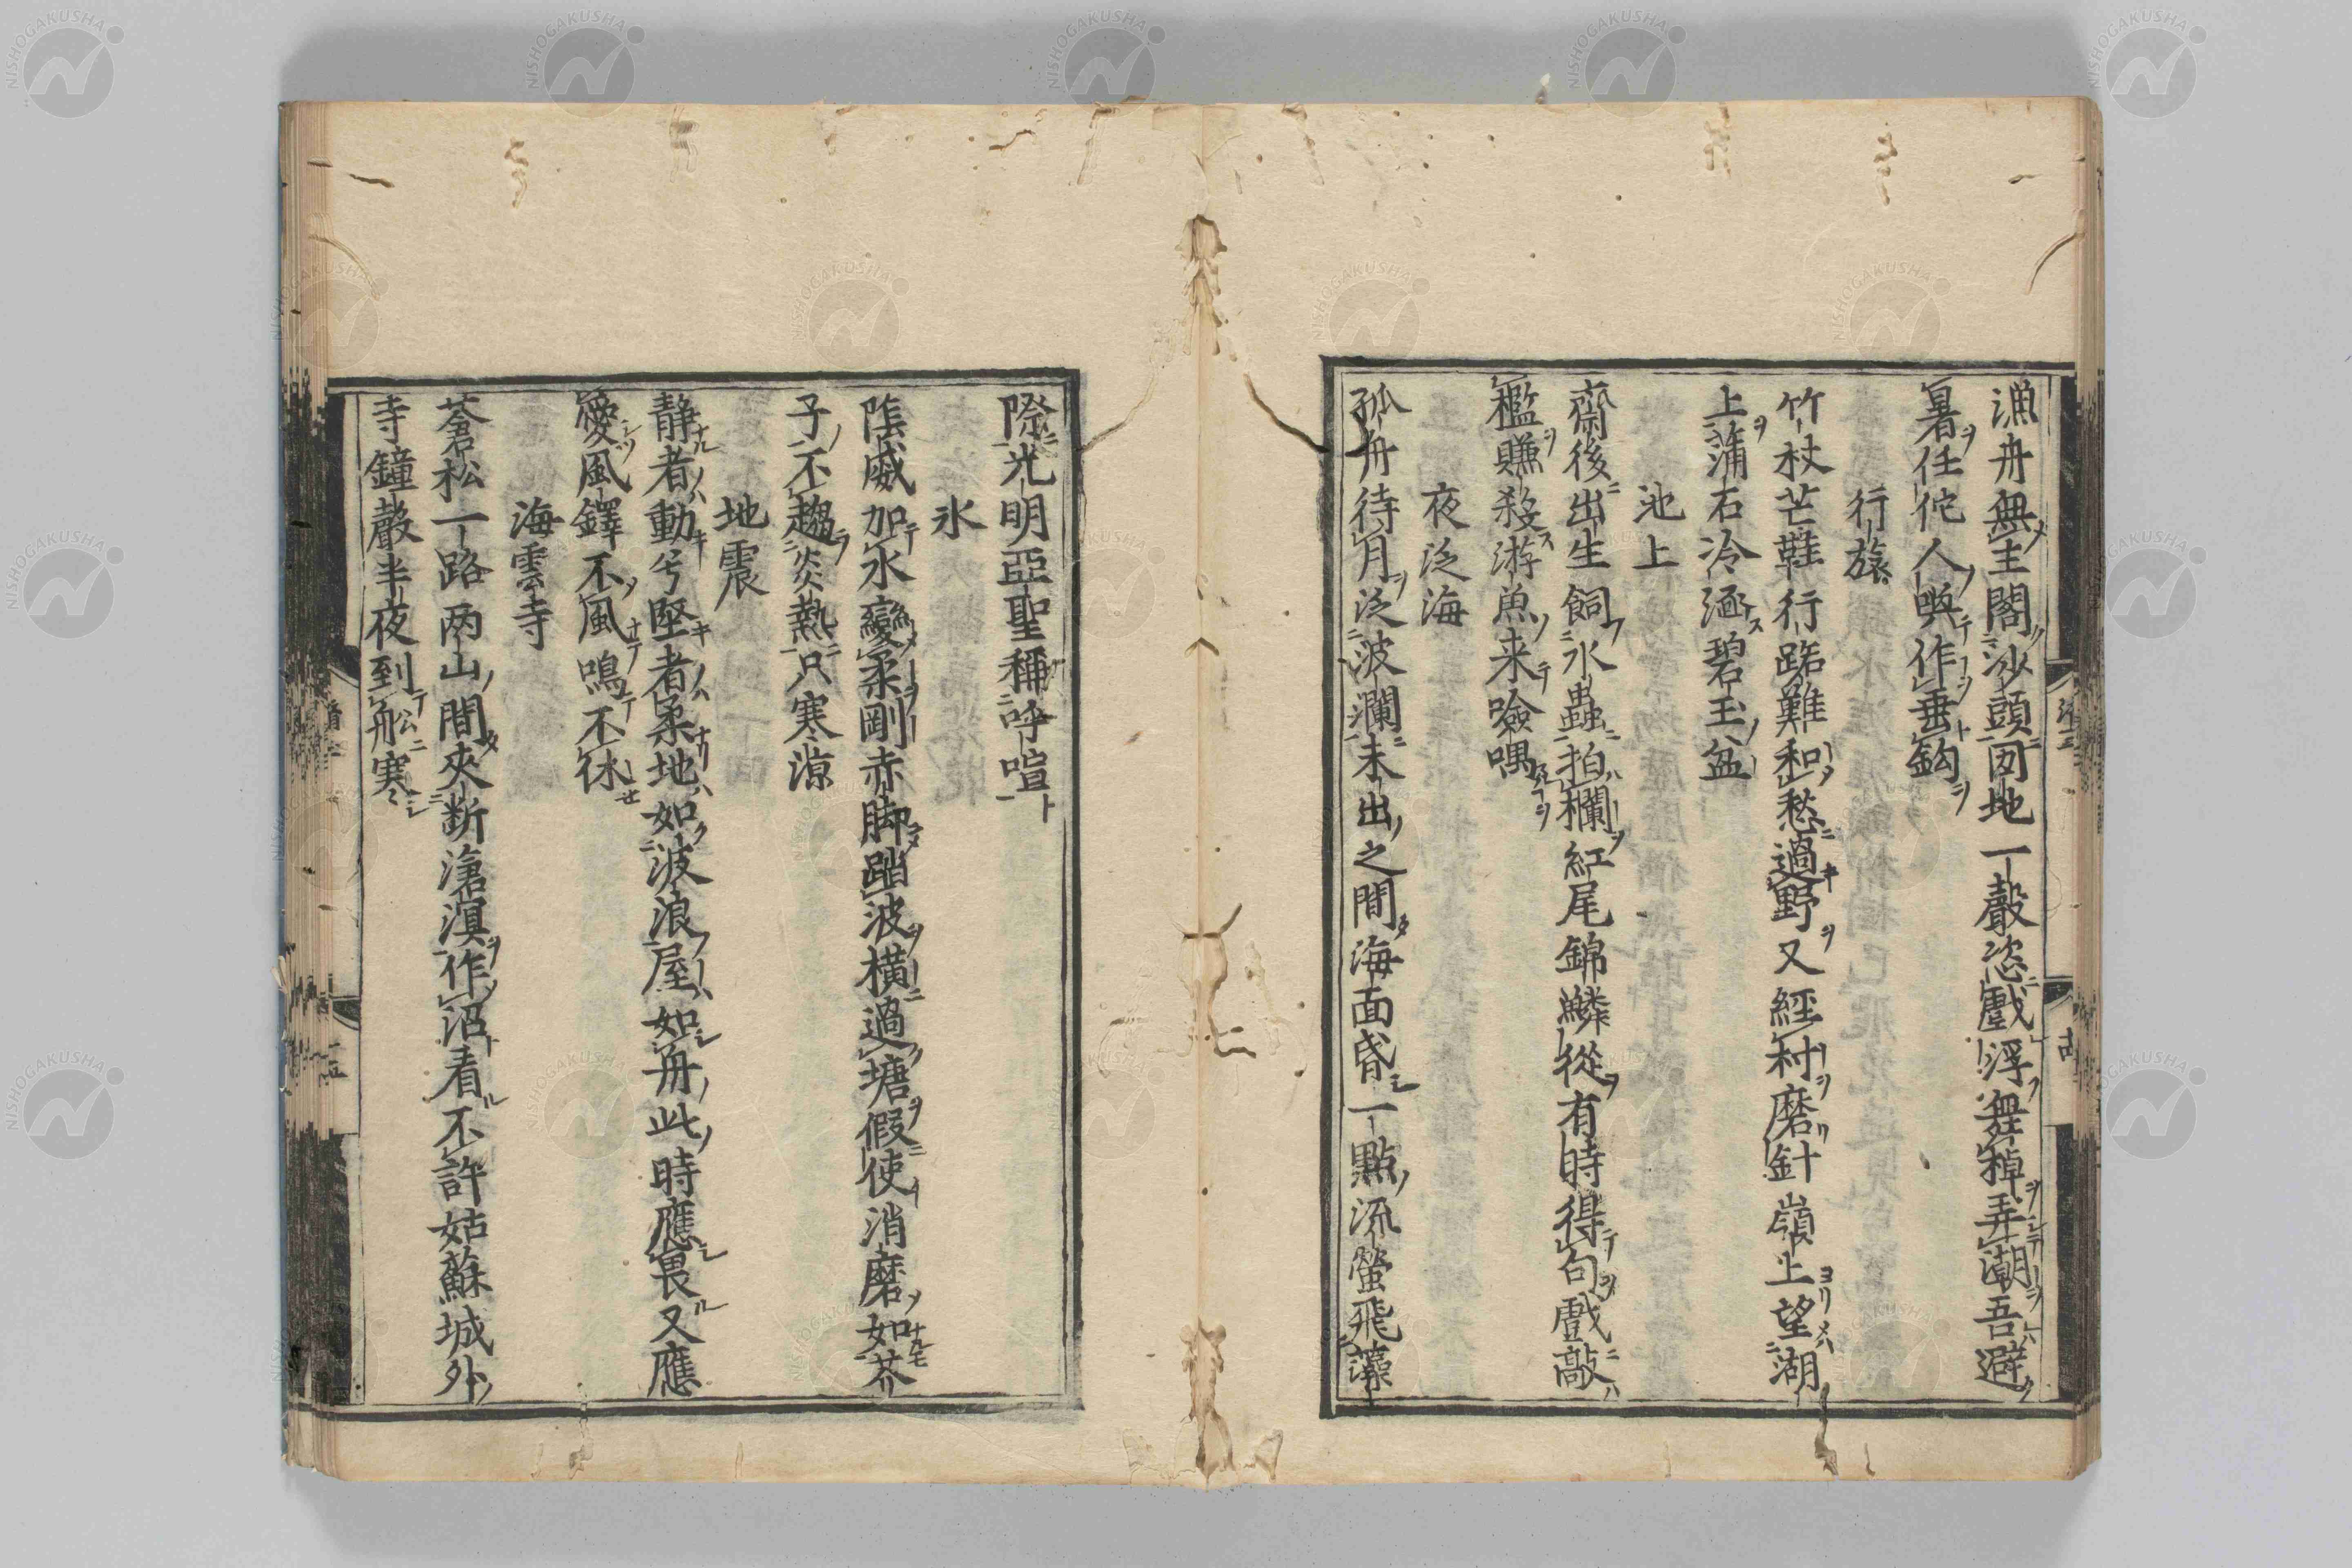 漁舟無主閣沙頭囡地一聲恣戲浮舞棹弄潮吾避
暑任佗人喚作垂鈎
行旅
竹杖芒鞋行路難和愁過野又經村磨針嶺上望湖
上蒲石冷涵碧玉盆
池上
齋後出生飼水蟲拍欄紅尾錦鱗從有時得句戲敲
檻賺殺游魚来噞喁
夜泛海
孤舟待月泛波瀾未出之間海面昏一點流螢飛藻
際光明亞聖稱呼喧
氷
陰威加水變柔剛赤脚踏波橫過塘假使消磨如芥
子不趨炎熱只寒凉
地震
静者動兮堅者柔地如波浪屋如舟此時應畏又應
愛風鐸不風鳴不休
海雲寺
蒼松一路两山間夾断滄溟作沼看不許姑蘇城外
寺鐘聲半夜到舩寒